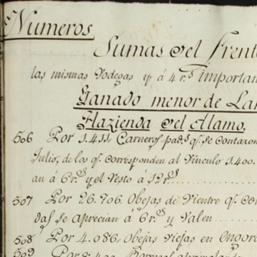 Numeros
Sumas del frent
las mismas Bodegas y á 4 rs. importan
Ganado menor de Lan
Hazienda del Alamo.
506 Por 1.411 Carneros pads. qe. se contaron
Julio, de los qe. corresponden al Vinculo 1400.
an á
y el resto á 12 rs.
507 Por 26.706 Obejas de Vientre qe. co
das se Aprecian á 6 rs. y valen
508 Por 4.086 Obejas Viejas en
509 Por